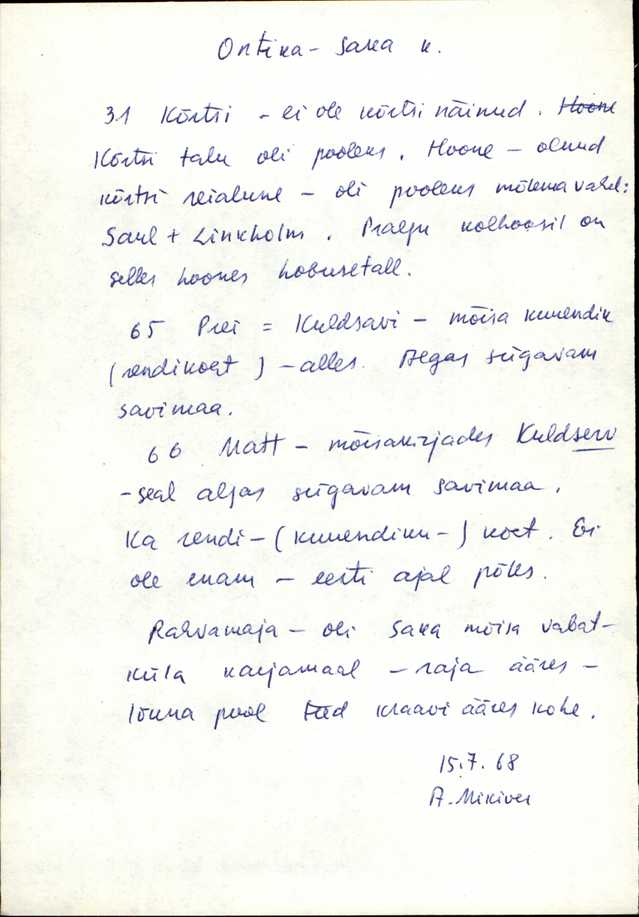 Ontika - Saka k.
31 Kõrtsi - ei ole kõrtsi näinud. Hoone
Kõrtsi talu oli pooleks. Hoone - olnud
kõrtsi reialune - oli pooleks mõlema vahel:
Saul + Linkholm. Praegu kolhoosil on
selles hoones hobusetall.
65 Prei = Kuldsavi - mõisa kuuendik
(rendikoht) - alles. Algas sügavam
savimaa.
66 Matt - mõisakirjades Kuldserv
- seal algas sügavam savimaa.
Ka rendi- (kuuendiku-) koht. Ei
ole enam - eesti ajal põles.
Rahvamaja - oli Saka mõisa vabat-
küla karjamaal - raja ääres -
lõuna pool kraavi ääres kohe.
15.7.68
A. Mikiver